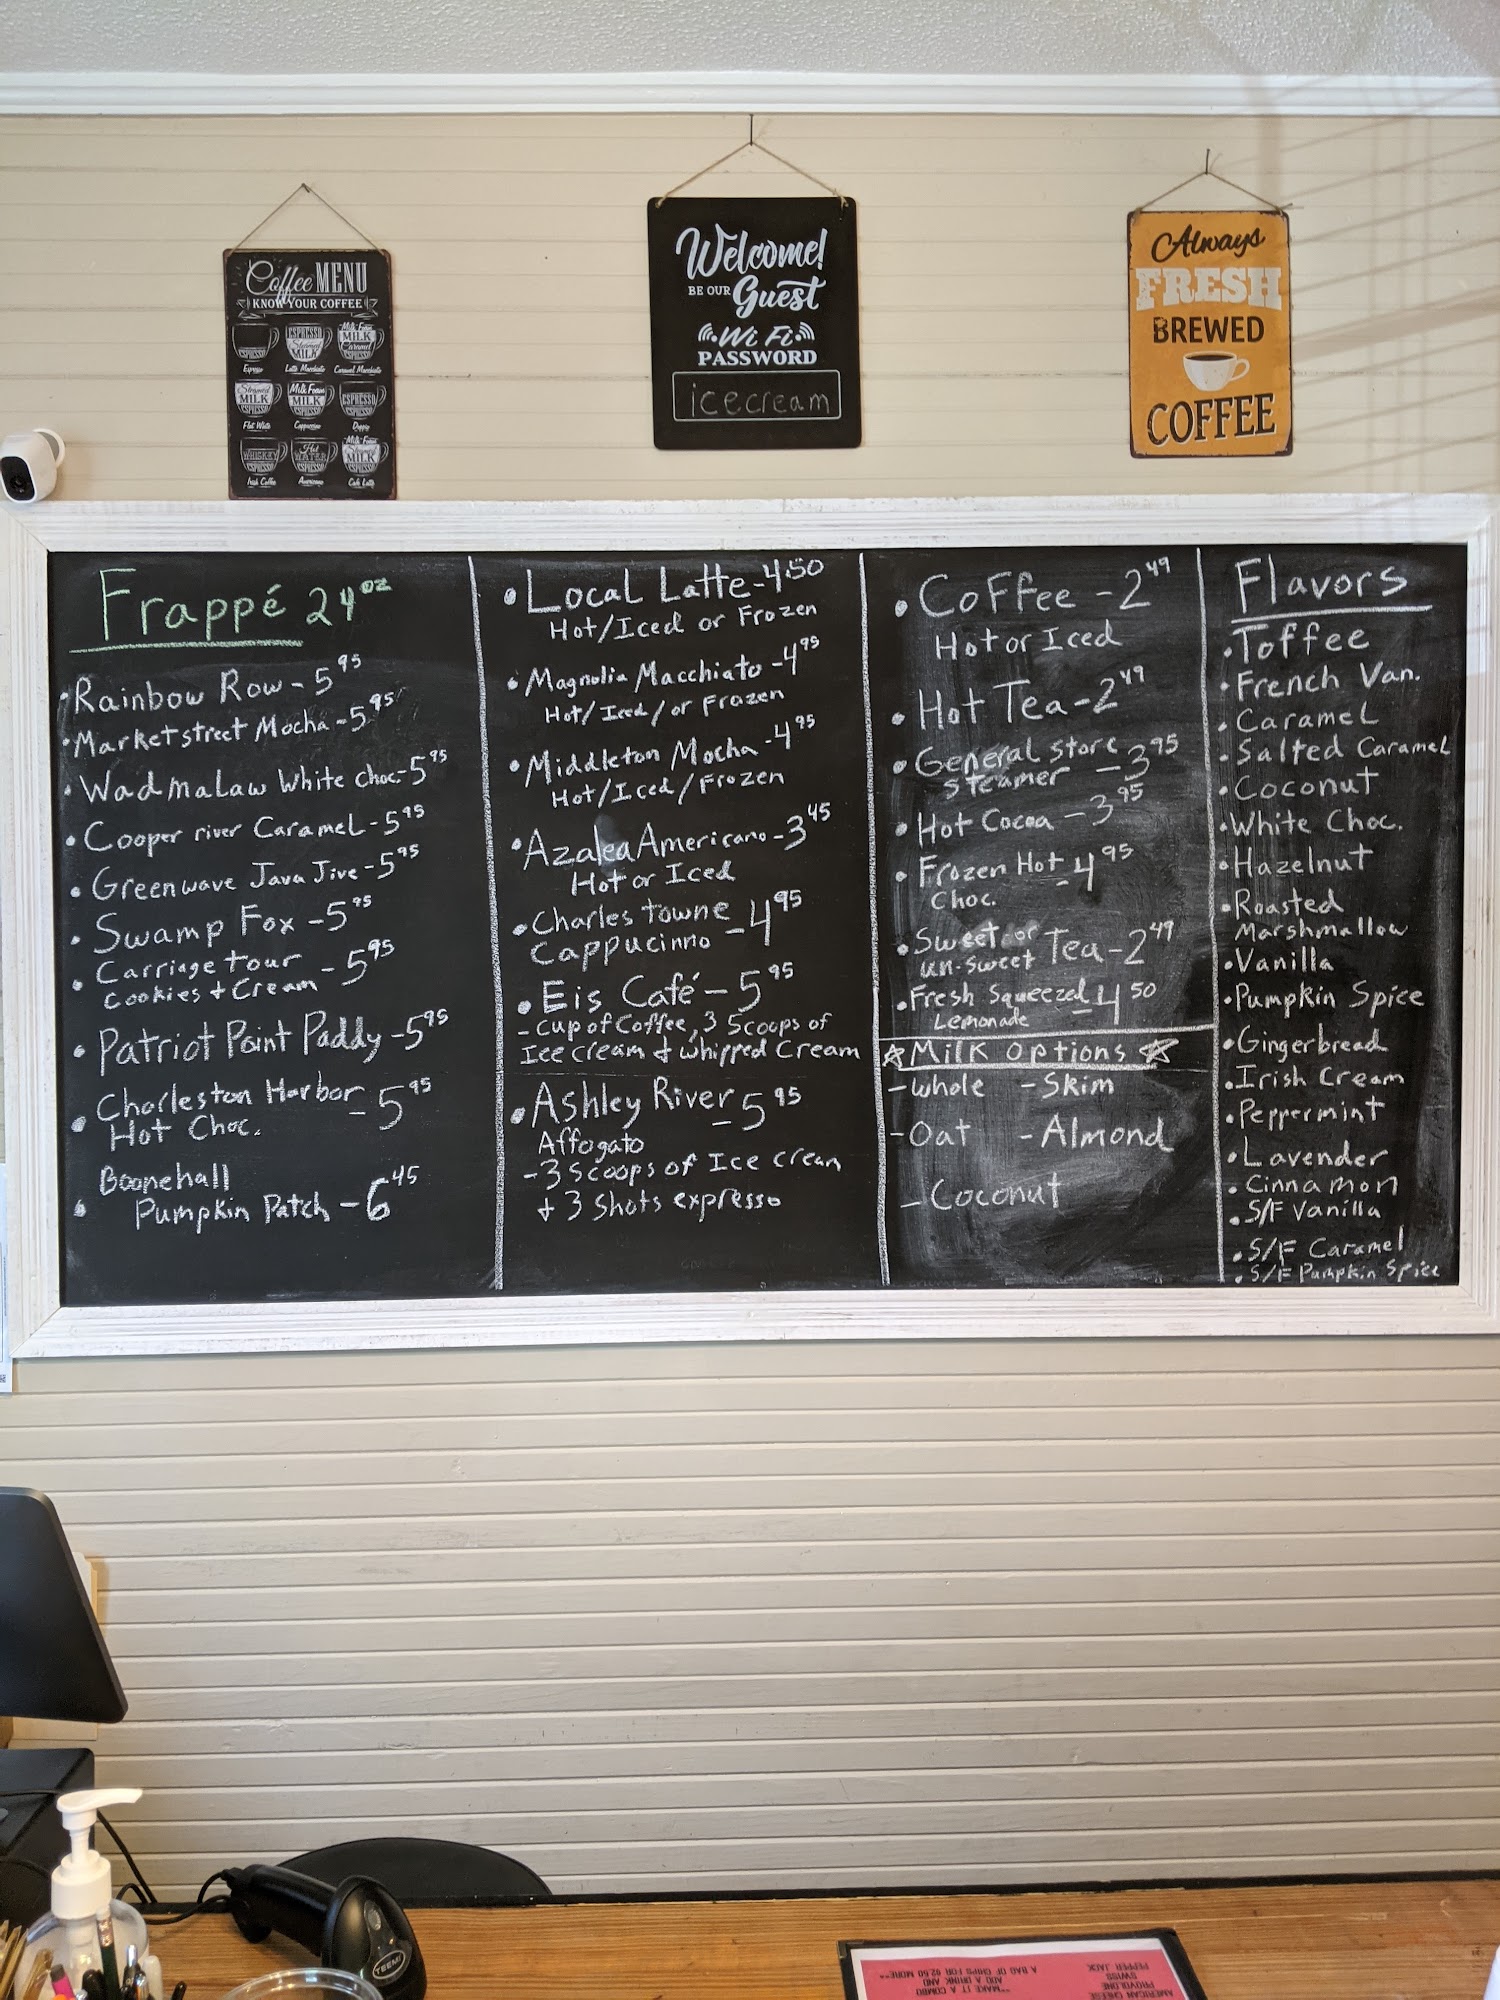 Coffee MENU
KNOW YOUR COFFEE
ESPRESSO
Espresso
ESPRESSO
Steamed
MILK
Latte Macchiato
Milk Foam
MILK
Caramel
ESPRESSO
Caramel Macchiato
Steamed
MILK
ESPRESSO
Flat White
Milk Foam
MILK
ESPRESSO
Cappuccino
ESPRESSO
ESPRESSO
Doppio
WHISKEY
ESPRESSO
Irish Coffee
Hot
WATER
ESPRESSO
Americano
Milk Foam
Steamed
MILK
ESPRESSO
Cafe Latte
Welcome!
BE OUR Guest
Wi Fi
PASSWORD
icecream
Always
FRESH
BREWED
COFFEE
Frappé 24oz
• Rainbow Row - 5 95
• Marketstreet Mocha - 5 95
• Wadmalaw White choc - 5 95
• Cooper river Caramel - 5 95
• Greenwave Java Jive - 5 95
• Swamp Fox - 5 95
• Carriage tour
Cookies + Cream - 5 95
• Patriot Point Paddy - 5 95
• Charleston Harbor
Hot Choc. - 5 95
• Boonehall
Pumpkin Patch - 6 45
• Local Latte - 4 50
Hot/Iced or Frozen
• Magnolia Macchiato - 4 95
Hot/Iced/or Frozen
• Middleton Mocha - 4 95
Hot/Iced/Frozen
• Azalea Americano - 3 45
Hot or Iced
• Charles towne
Cappucinno - 4 95
• Eis Café - 5 95
- Cup of Coffee, 3 Scoops of
Ice cream + whipped Cream
• Ashley River - 5 95
Affogato
- 3 Scoops of Ice cream
+ 3 Shots expresso
• Coffee - 2 49
Hot or Iced
• Hot Tea - 2 49
• General store
Steamer - 3 95
• Hot Cocoa - 3 95
• Frozen Hot - 4 95
Choc.
• Sweet or
un-sweet Tea - 2 49
• Fresh Squeezed - 4 50
Lemonade
☆ Milk options ☆
- whole - Skim
- Oat - Almond
- Coconut
Flavors
• Toffee
• French Van.
• Caramel
• Salted Caramel
• Coconut
• White Choc.
• Hazelnut
• Roasted
Marshmallow
• Vanilla
• Pumpkin Spice
• Gingerbread
• Irish Cream
• Peppermint
• Lavender
• Cinnamon
• S/F Vanilla
• S/F Caramel
• S/F Pumpkin Spice
TEEMI
AMERICAN CHEESE
PROVOLONE
SWISS
PEPPER JACK
**MAKE IT A COMBO
ADD A DRINK AND
A BAG OF CHIPS FOR $2.50 MORE**